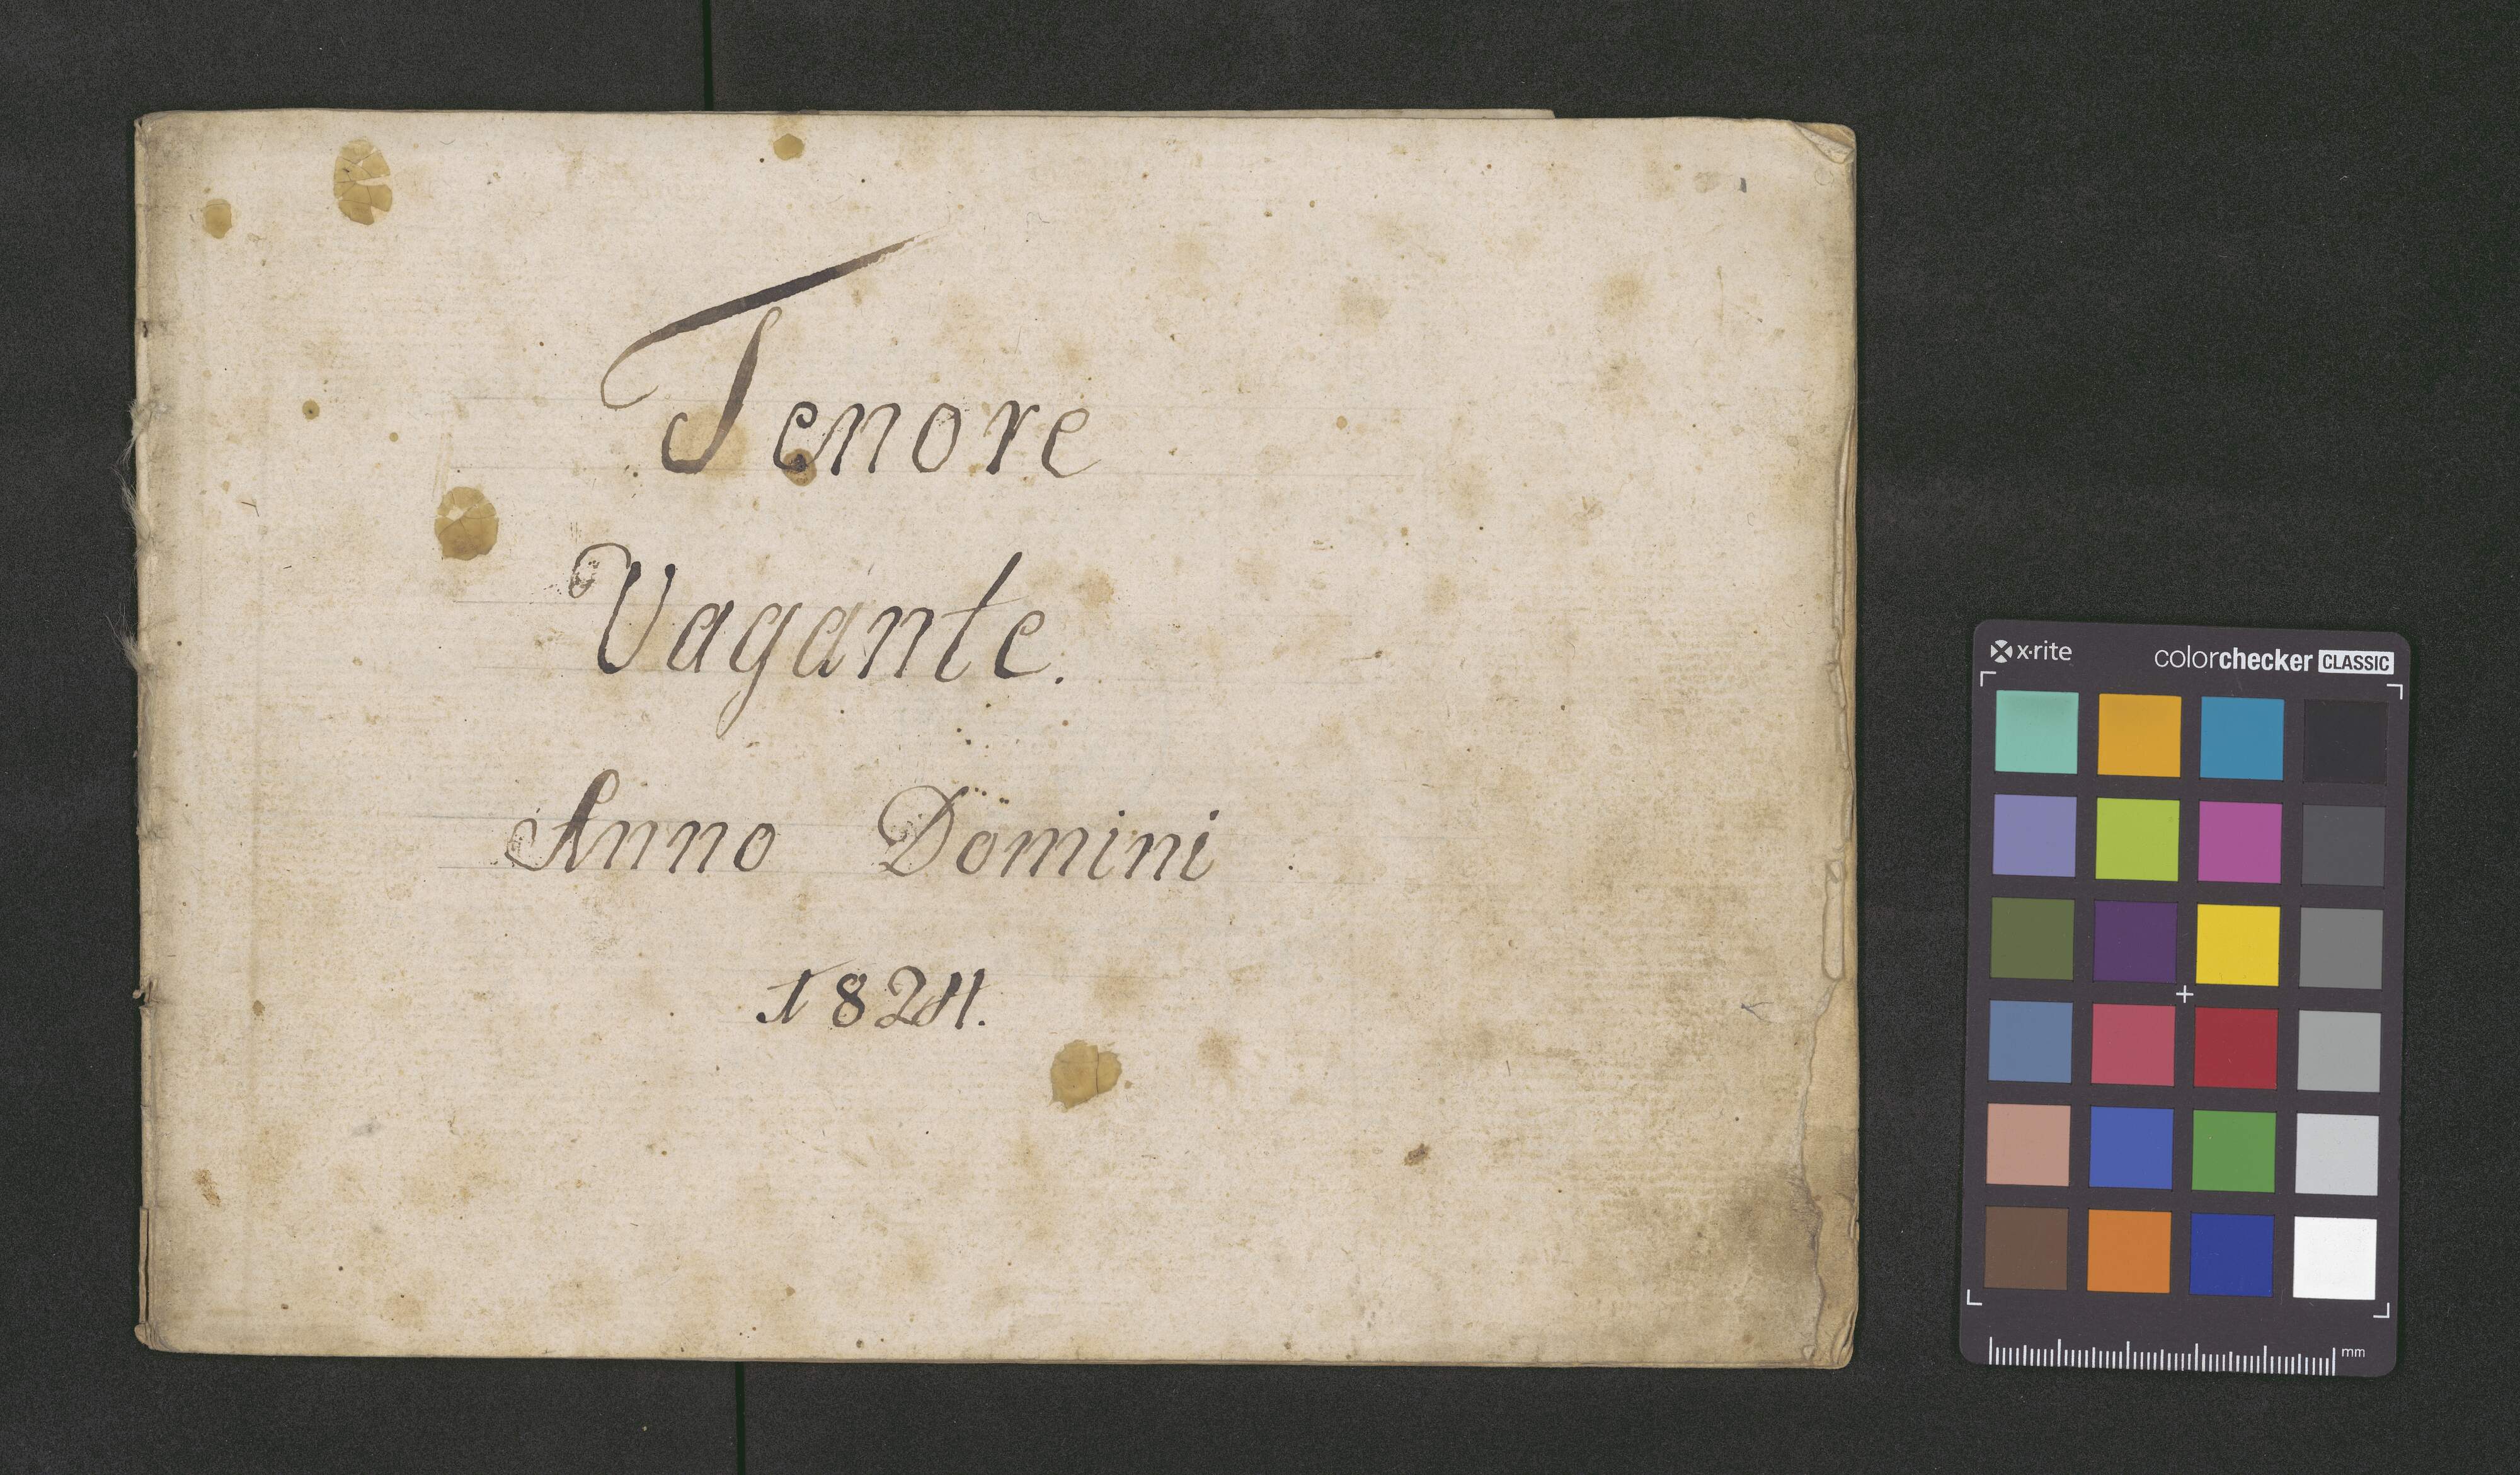 Tenore
Vagante.
Anno Domini
1824.
x·rite
colorchecker CLASSIC
mm